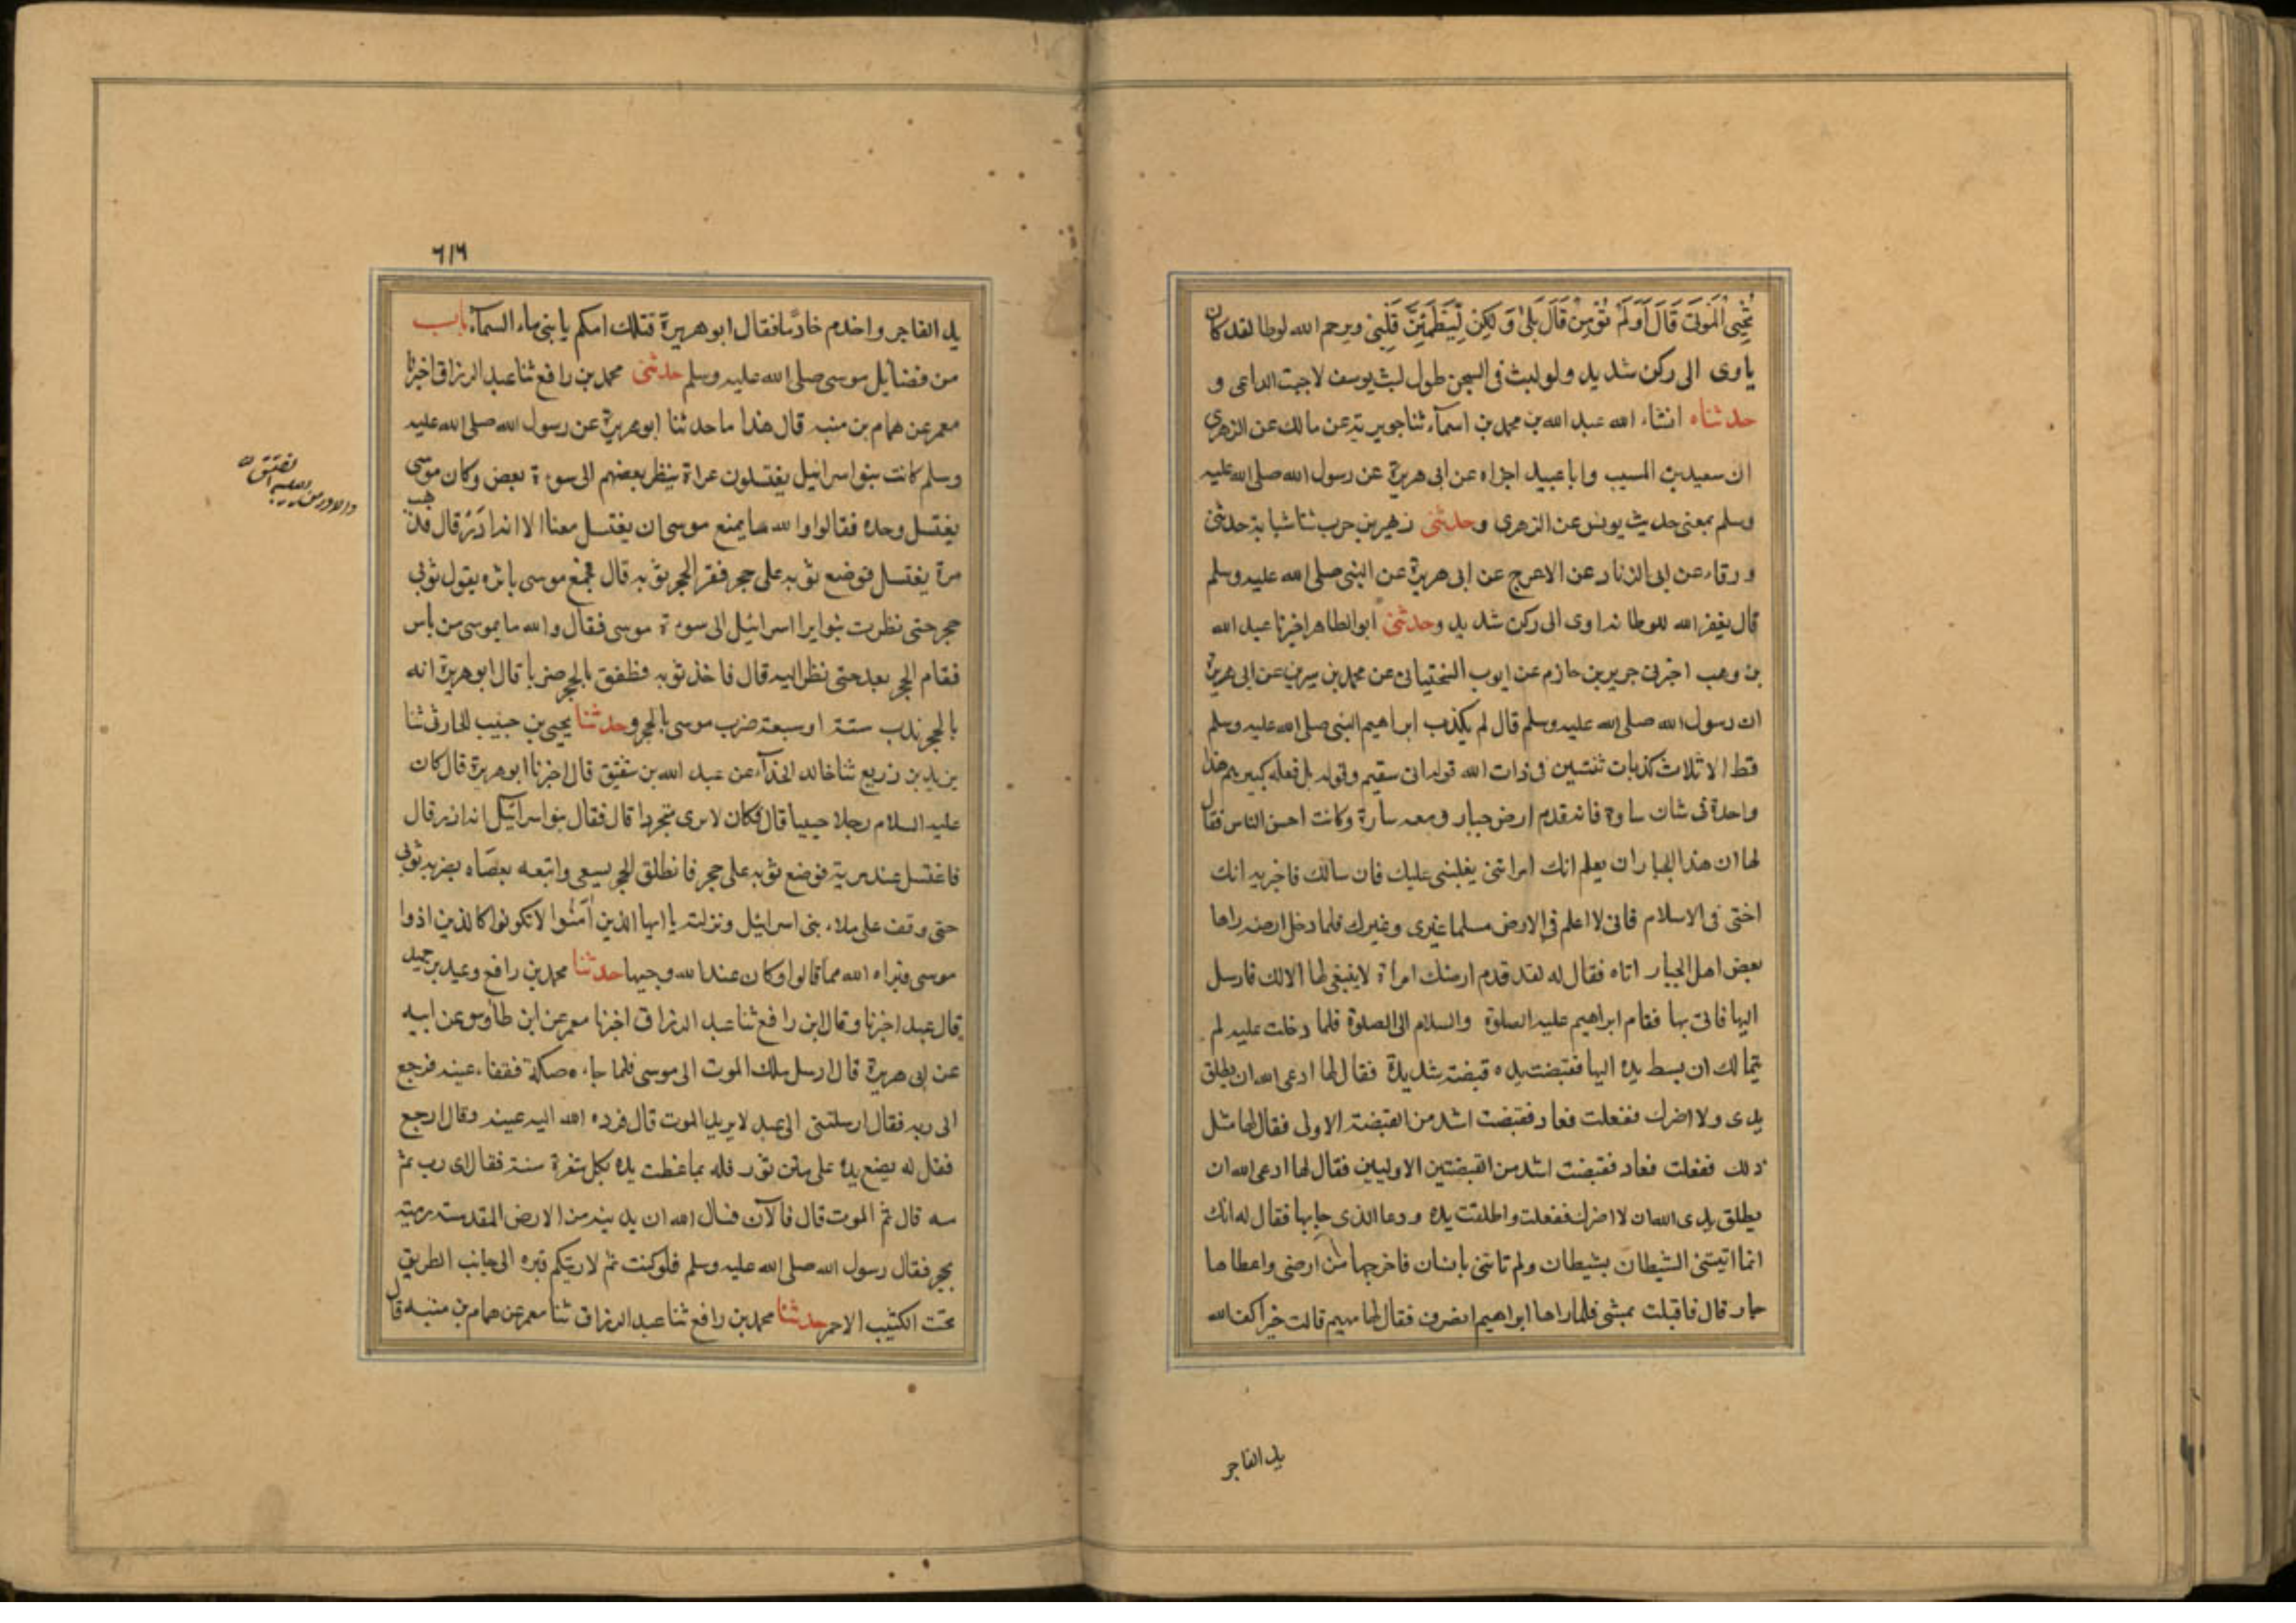 تُحْيِى الْمَوْتَى قَالَ أَوَلَمْ تُؤْمِنْ قَالَ بَلَىٰ وَلَكِنْ لِيَطْمَئِنَّ قَلْبِى ويرحم الله لوطا لقد كان
ياوى الى ركن شديد ولو لبث فى السجن طول لبث يوسف لاجبت الداعى و
حدثناه انشاء الله عبد الله بن محمد بن اسمآء ثنا جويرية عن مالك عن الزهرى
ان سعيد بن المسيب وابا عبيد اخبراه عن ابى هريرة عن رسول الله صلى الله عليه
وسلم بمعنى حديث يونس عن الزهرى وحدثنى زهير بن حرب ثنا شبابة حدثنى
ورقاء عن ابى الزناد عن الاعرج عن ابى هريرة عن النبى صلى الله عليه وسلم
قال يغفر الله للوط انه اوى الى ركن شديد وحدثنى ابو الطاهر اخبرنا عبد الله
بن وهب اخبرنى جرير بن حازم عن ايوب السختيانى عن محمد بن سيرين عن ابى هريرة
ان رسول الله صلى الله عليه وسلم قال لم يكذب ابراهيم النبى صلى الله عليه وسلم
قط الا ثلاث كذبات ثنتين فى ذات الله قوله انى سقيم وقوله بل فعله كبيرهم هذا
واحدة فى شان سارة فانه قدم ارض جبار ومعه سارة وكانت احسن الناس فقال
لها ان هذا الجبار ان يعلم انك امراتى يغلبنى عليك فان سالك فاخبريه انك
اختى فى الاسلام فانى لا اعلم فى الارض مسلما غيرى وغيرك فلما دخل ارضه راها
بعض اهل الجبار اتاه فقال له لقد قدم ارضك امراة لا ينبغى لها الا لك فارسل
اليها فاتى بها فقام ابراهيم عليه الصلوة والسلام الى الصلوة فلما دخلت عليه لم
يتمالك ان بسط يده اليها فقبضت يده قبضة شديدة فقال لها ادعى الله ان يطلق
يدى ولا اضرك ففعلت فعاد فقبضت اشد من القبضة الاولى فقال لها مثل
ذلك ففعلت فعاد فقبضت اشد من القبضتين الاوليين فقال لها ادعى الله ان
يطلق يدى الله ان لا اضرك ففعلت واطلقت يده ودعا الذى جابها فقال له انك
انما اتيتنى الشيطان بشيطان ولم تاتنى بانسان فاخرجها من ارضى واعطاها
هاجر قال فاقبلت تمشى فلما راها ابراهيم انصرف فقال لها مهيم قالت خيرا كف الله
يد الفاجر
٦١٦
يد الفاجر واخدم خادما فقال ابو هريرة فتلك امكم يا بنى ماء السمآء باب
من فضائل موسى صلى الله عليه وسلم حدثنى محمد بن رافع ثنا عبد الرزاق اخبرنا
معمر عن همام بن منبه قال هذا ما حدثنا ابو هريرة عن رسول الله صلى الله عليه
وسلم كانت بنو اسرائيل يغتسلون عراة ينظر بعضهم الى سوءة بعض وكان موسى
يغتسل وحده فقالوا والله ما يمنع موسى ان يغتسل معنا الا انه ادر قال فذهب
مرة يغتسل فوضع ثوبه على حجر ففر الحجر بثوبه قال فجمع موسى باثره يقول ثوبى
حجر حتى نظرت بنو ايرا اسرائيل الى سوءة موسى فقال والله ما بموسى من باس
فقام الحجر بعد حتى نظر اليه قال فاخذ ثوبه فطفق بالحجر ضربا قال ابو هريرة انه
بالحجر ندب ستة او سبعة ضرب موسى بالحجر وحدثنا يحيى بن حبيب الحارثى ثنا
يزيد بن زريع ثنا خالد الحذآء عن عبد الله بن شقيق قال اخبرنا ابو هريرة قال كان
عليه السلام رجلا حييا قال فكان لا يرى متجردا قال فقال بنو اسرآئيل انه ادر قال
فاغتسل عند مويه فوضع ثوبه على حجر فانطلق الحجر يسعى واتبعه بعصاه يضربه ثوبى
حتى وقف على ملاء بنى اسرائيل ونزلت يا ايها الذين آمنوا لا تكونوا كالذين اذوا
موسى فبراه الله مما قالوا وكان عند الله وجيها حدثنا محمد بن رافع وعبد بن حميد
قال عبد اخبرنا وقال ابن رافع ثنا عبد الرزاق اخبرنا معمر عن ابن طاوس عن ابيه
عن ابى هريرة قال ارسل ملك الموت الى موسى فلما جاءه صكة ففقاء عينه فرجع
الى ربه فقال ارسلتنى الى عبد لا يريد الموت قال فرده الله اليه عينه وقال ارجع
فقل له يضع يده على متن ثور فله بما غطت يده بكل شعرة سنة فقال اى رب ثم
مه قال ثم الموت قال فالآن فسال الله ان يدنيه من الارض المقدسة رمية
بحجر فقال رسول الله صلى الله عليه وسلم فلو كنت ثم لاريتكم قبره الى جانب الطريق
تحت الكثيب الاحمر حدثنا محمد بن رافع ثنا عبد الرزاق ثنا معمر عن همام بن منبه قال